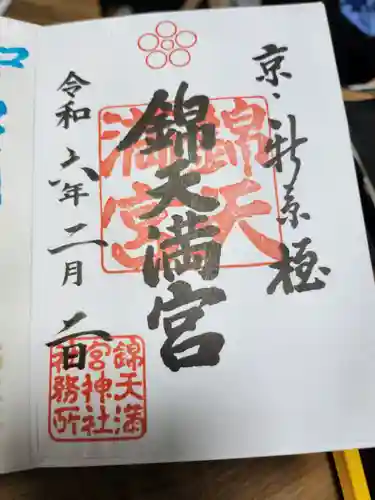 京、新京極
錦天満宮
錦天
満宮
令和六年二月二日
錦天満
宮神社
社務所